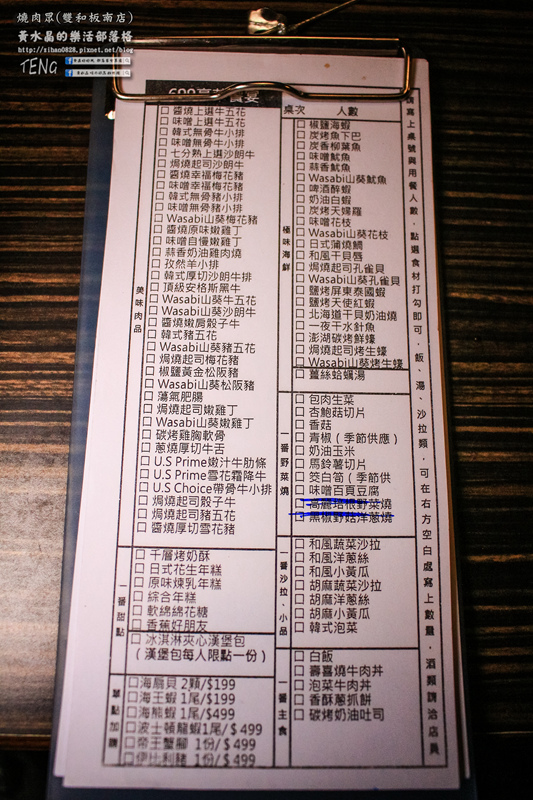 燒肉眾(雙和板南店)
黃水晶的樂活部落格
http://xihan0828.pixnet.net/blog
TENG
桌次 人數
美味肉品
□ 醬燒上選牛五花
□ 味噌上選牛五花
□ 韓式無骨牛小排
□ 味噌無骨牛小排
□ 七分熟上選沙朗牛
□ 焗燒起司沙朗牛
□ 醬燒幸福梅花豬
□ 味噌幸福梅花豬
□ 韓式無骨豬小排
□ 味噌無骨豬小排
□ Wasabi山葵梅花豬
□ 醬燒原味嫩雞丁
□ 味噌自慢嫩雞丁
□ 蒜香奶油雞肉燒
□ 孜然羊小排
□ 韓式厚切沙朗牛排
□ 頂級安格斯黑牛
□ Wasabi山葵牛五花
□ Wasabi山葵沙朗牛
□ 醬燒嫩肩骰子牛
□ 韓式豬五花
□ Wasabi山葵豬五花
□ 焗燒起司梅花豬
□ 椒鹽黃金松阪豬
□ Wasabi山葵松阪豬
□ 蕩氣肥腸
□ 焗燒起司嫩雞丁
□ Wasabi山葵嫩雞丁
□ 碳烤雞胸軟骨
□ 蔥燒厚切牛舌
□ U.S Prime嫩汁牛肋條
□ U.S Prime雪花霜降牛
□ U.S Choice帶骨牛小排
□ 焗燒起司骰子牛
□ 焗燒起司豬五花
□ 醬燒厚切雪花豬
一番甜點
□ 千層烤奶酥
□ 日式花生年糕
□ 原味煉乳年糕
□ 綜合年糕
□ 軟綿綿花糖
□ 香蕉好朋友
□ 冰淇淋夾心漢堡包
(漢堡包每人限點一份)
單點加購
□ 海扇貝 2顆/$199
□ 海王蝦 1尾/$199
□ 海熊蝦 1尾/$499
□ 波士頓龍蝦1尾/$ 499
□ 帝王蟹腳 1份/$ 499
□ 伊比利豬 1份/$ 499
極味海鮮
□ 椒鹽海蝦
□ 炭烤魚下巴
□ 炭香柳葉魚
□ 味噌魷魚
□ 蒜香魷魚
□ Wasabi山葵魷魚
□ 啤酒醉蝦
□ 奶油白蝦
□ 炭烤天婦羅
□ 味噌花枝
□ Wasabi山葵花枝
□ 日式蒲燒鯛
□ 和風干貝唇
□ 焗燒起司孔雀貝
□ Wasabi山葵孔雀貝
□ 鹽烤屏東泰國蝦
□ 鹽烤天使紅蝦
□ 北海道干貝奶油燒
□ 一夜干水針魚
□ 澎湖碳烤鮮蠔
□ 焗燒起司烤生蠔
□ Wasabi山葵烤生蠔
□ 薑絲蛤蠣湯
一番野菜燒
□ 包肉生菜
□ 杏鮑菇切片
□ 香菇
□ 青椒(季節供應)
□ 奶油玉米
□ 馬鈴薯切片
□ 筊白筍(季節供
□ 味噌百頁豆腐
□ 高麗培根野菜燒
□ 黑椒野菇洋蔥燒
一番沙拉、小品
□ 和風蔬菜沙拉
□ 和風洋蔥絲
□ 和風小黃瓜
□ 胡麻蔬菜沙拉
□ 胡麻洋蔥絲
□ 胡麻小黃瓜
□ 韓式泡菜
一番主食
□ 白飯
□ 壽喜燒牛肉丼
□ 泡菜牛肉丼
□ 香酥蔥抓餅
□ 碳烤奶油吐司
請寫上桌號與用餐人數,點選食材打勾即可,飯、湯、沙拉類,可在右方空白處寫上數量,酒類請洽店員